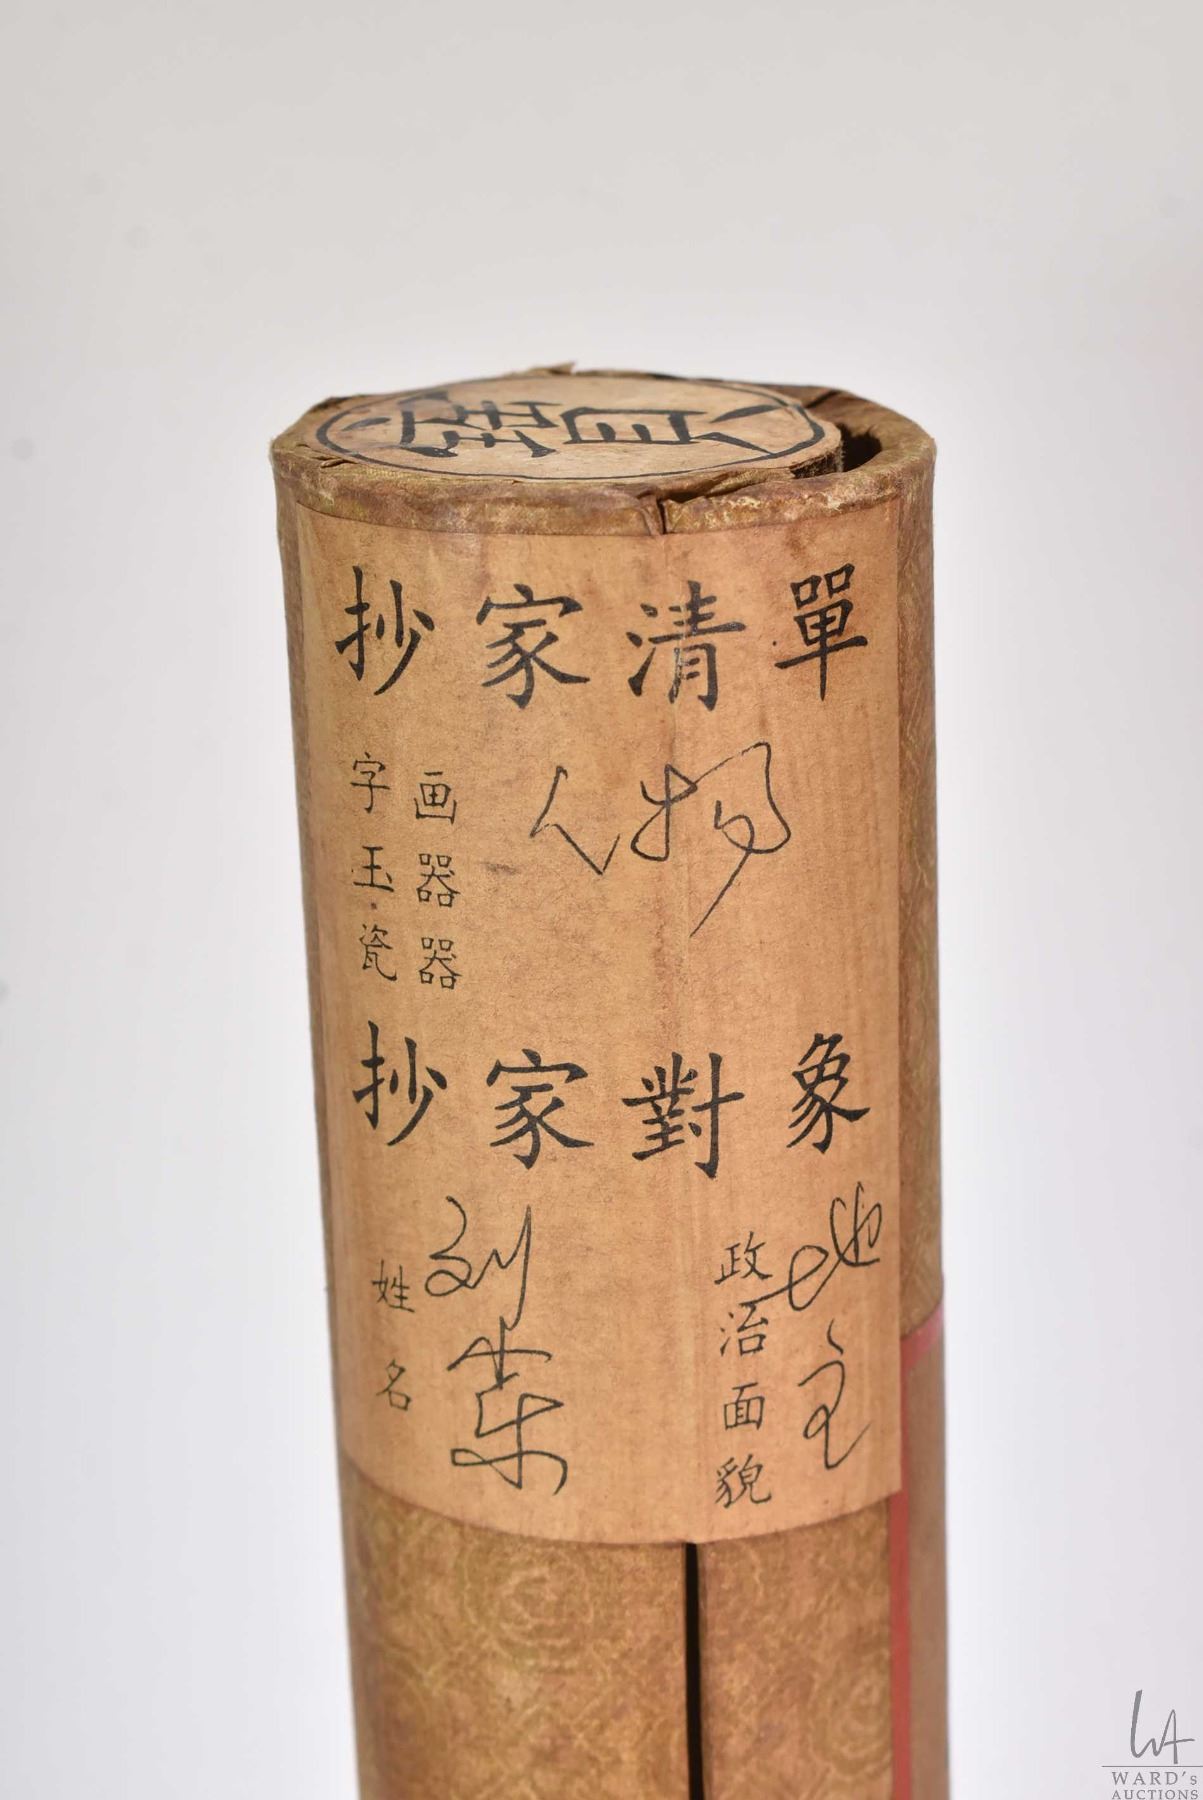 抄家清單
字画
玉器
瓷器
人物
抄家對象
姓名
刘荣
政治面貌
地主
WARD's
AUCTIONS